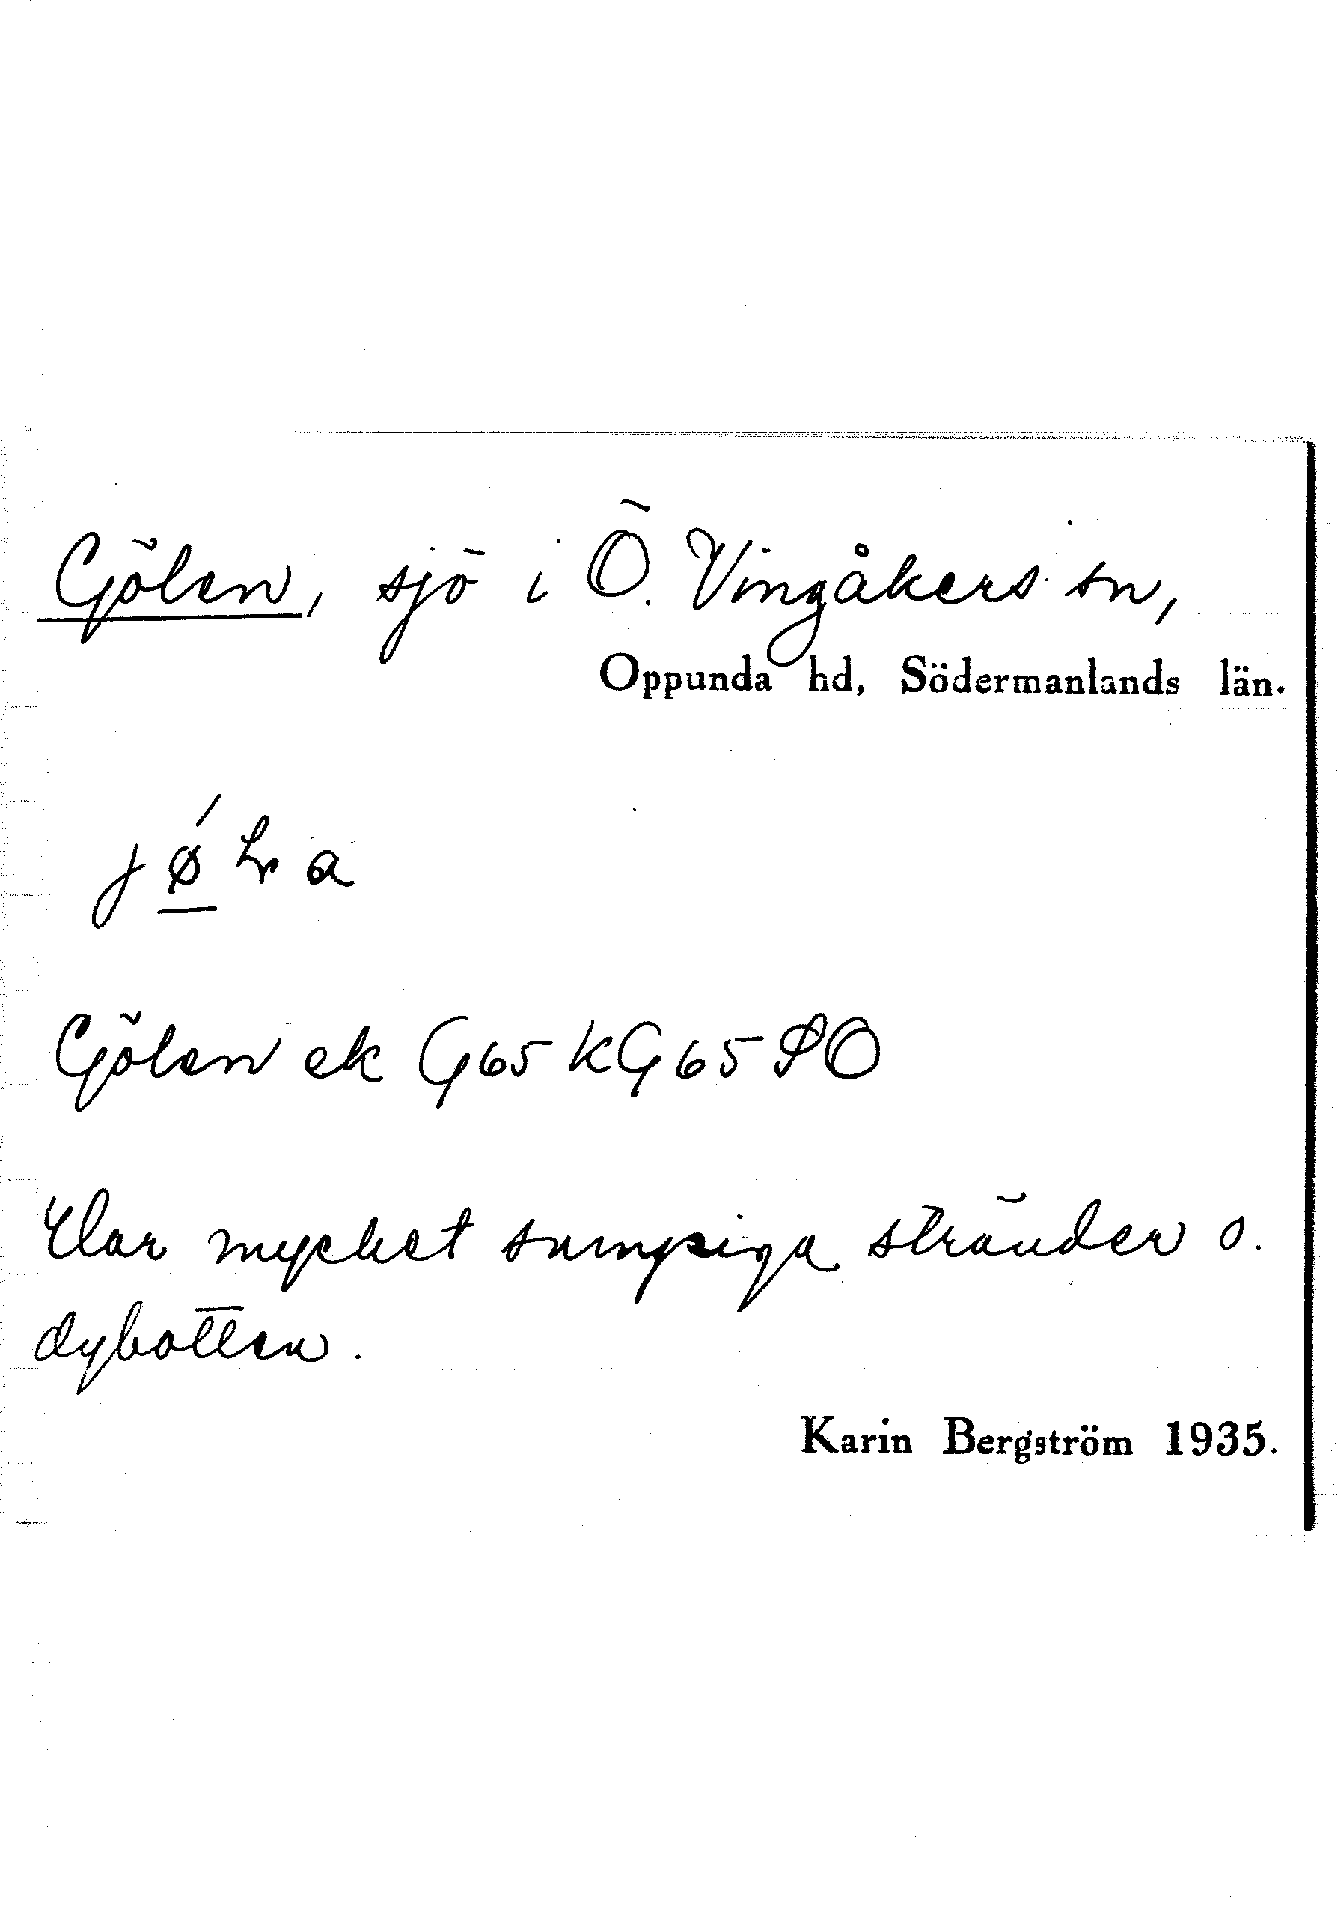 Gölen, sjö i Ö. Vingåkers sn,
Oppunda hd, Södermanlands län.
Gölen ek G65 KG65 SO
Har mycket sumpiga stränder o.
dybotten.
Karin Bergström 1935.